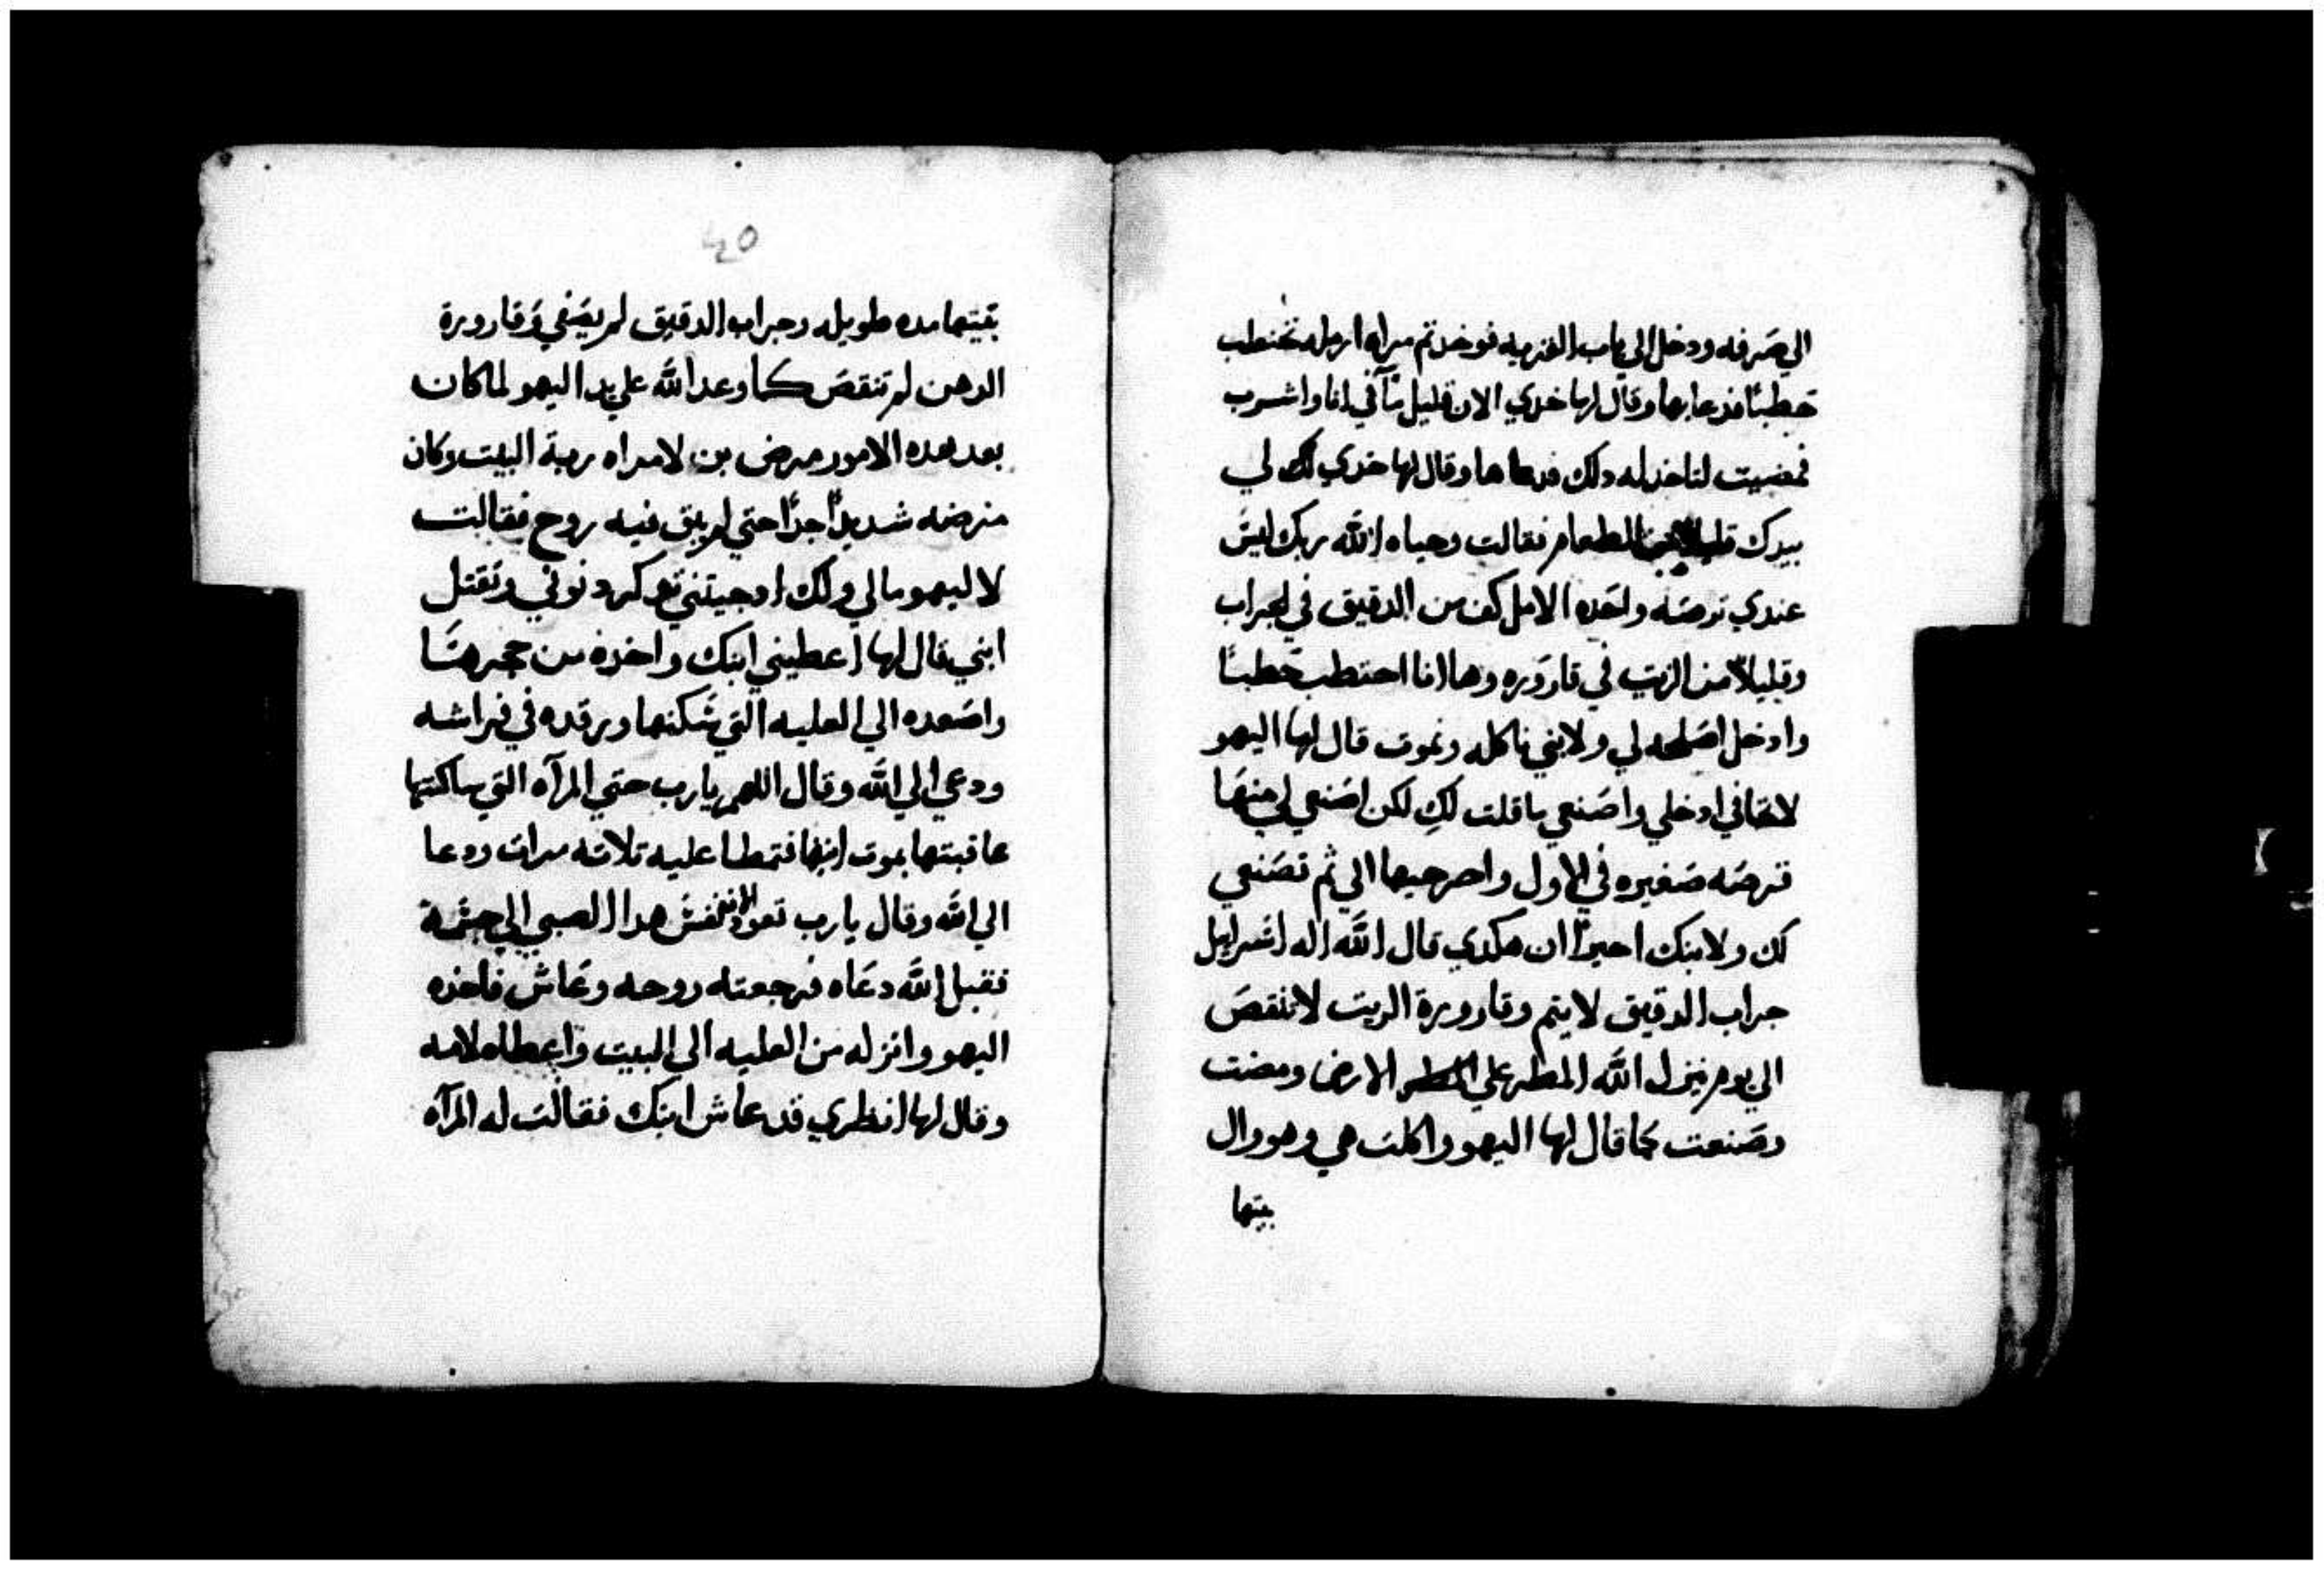 الي صرفه ودخل الي باب القريه فوجد تم مراه ارمله تحتطب
حطبًا فدعاها وقال لها خدي الان قليل مآ في انا واشرب
فمضيت لتاخد له دلك فدعاها وقال لها خدي لك لي
بيدك قليلا من الطعام فقالت وحياه الله ربك ليس
عندي قرصه واحده الا مل كف من الدقيق في الجراب
وقليلاً من الزيت في قاروره وها انا احتطب حطبًا
وادخل اصلحه لي ولابني ناكله ونموت قال لها اليهو
لا تخافي ادخلي واصنعي ما قلت لكِ لكن اصنعي لي منها
قرصه صغيره في الاول واخرجيها الي ثم تصنعي
لك ولابنك اخيرًا ان هكدي قال الله اله اسرايل
جراب الدقيق لا يتم وقارورة الزيت لا تنقص
الي يوم ينزل الله المطر علي الارض ومضت
وصنعت كما قال لها اليهو واكلت هي وهو وال
بيتها
٤٥
بيتها مده طويله وجراب الدقيق لم يفني وقارورة
الدهن لم تنقص كما وعد الله علي يد اليهو لما كان
بعد هده الامور مرض بن لامراه ربة البيت وكان
مرضه شديدًا جدًا حتي لم يبق فيه روح فقالت
لاليهو مالي ولك اوجيتني تدكر دنوبي وتقتل
ابني قال لها اعطيني ابنك واخذه من حجرها
واصعده الي العليه التي سكنها ورقده في فراشه
ودعي الي الله وقال اللهم يارب حتي المرآه التي ساكنتها
عاقبتها بموت ابنها فتمطا عليه تلاته مرات ودعا
الي الله وقال يارب تعود الان نفس هدا الصبي الي جسمه
فقبل الله دعاه فرجعته روحه وعاش فاخذه
اليهو وانزله من العليه الي البيت واعطاه لامه
وقال لها انظري قد عاش ابنك فقالت له المرآه